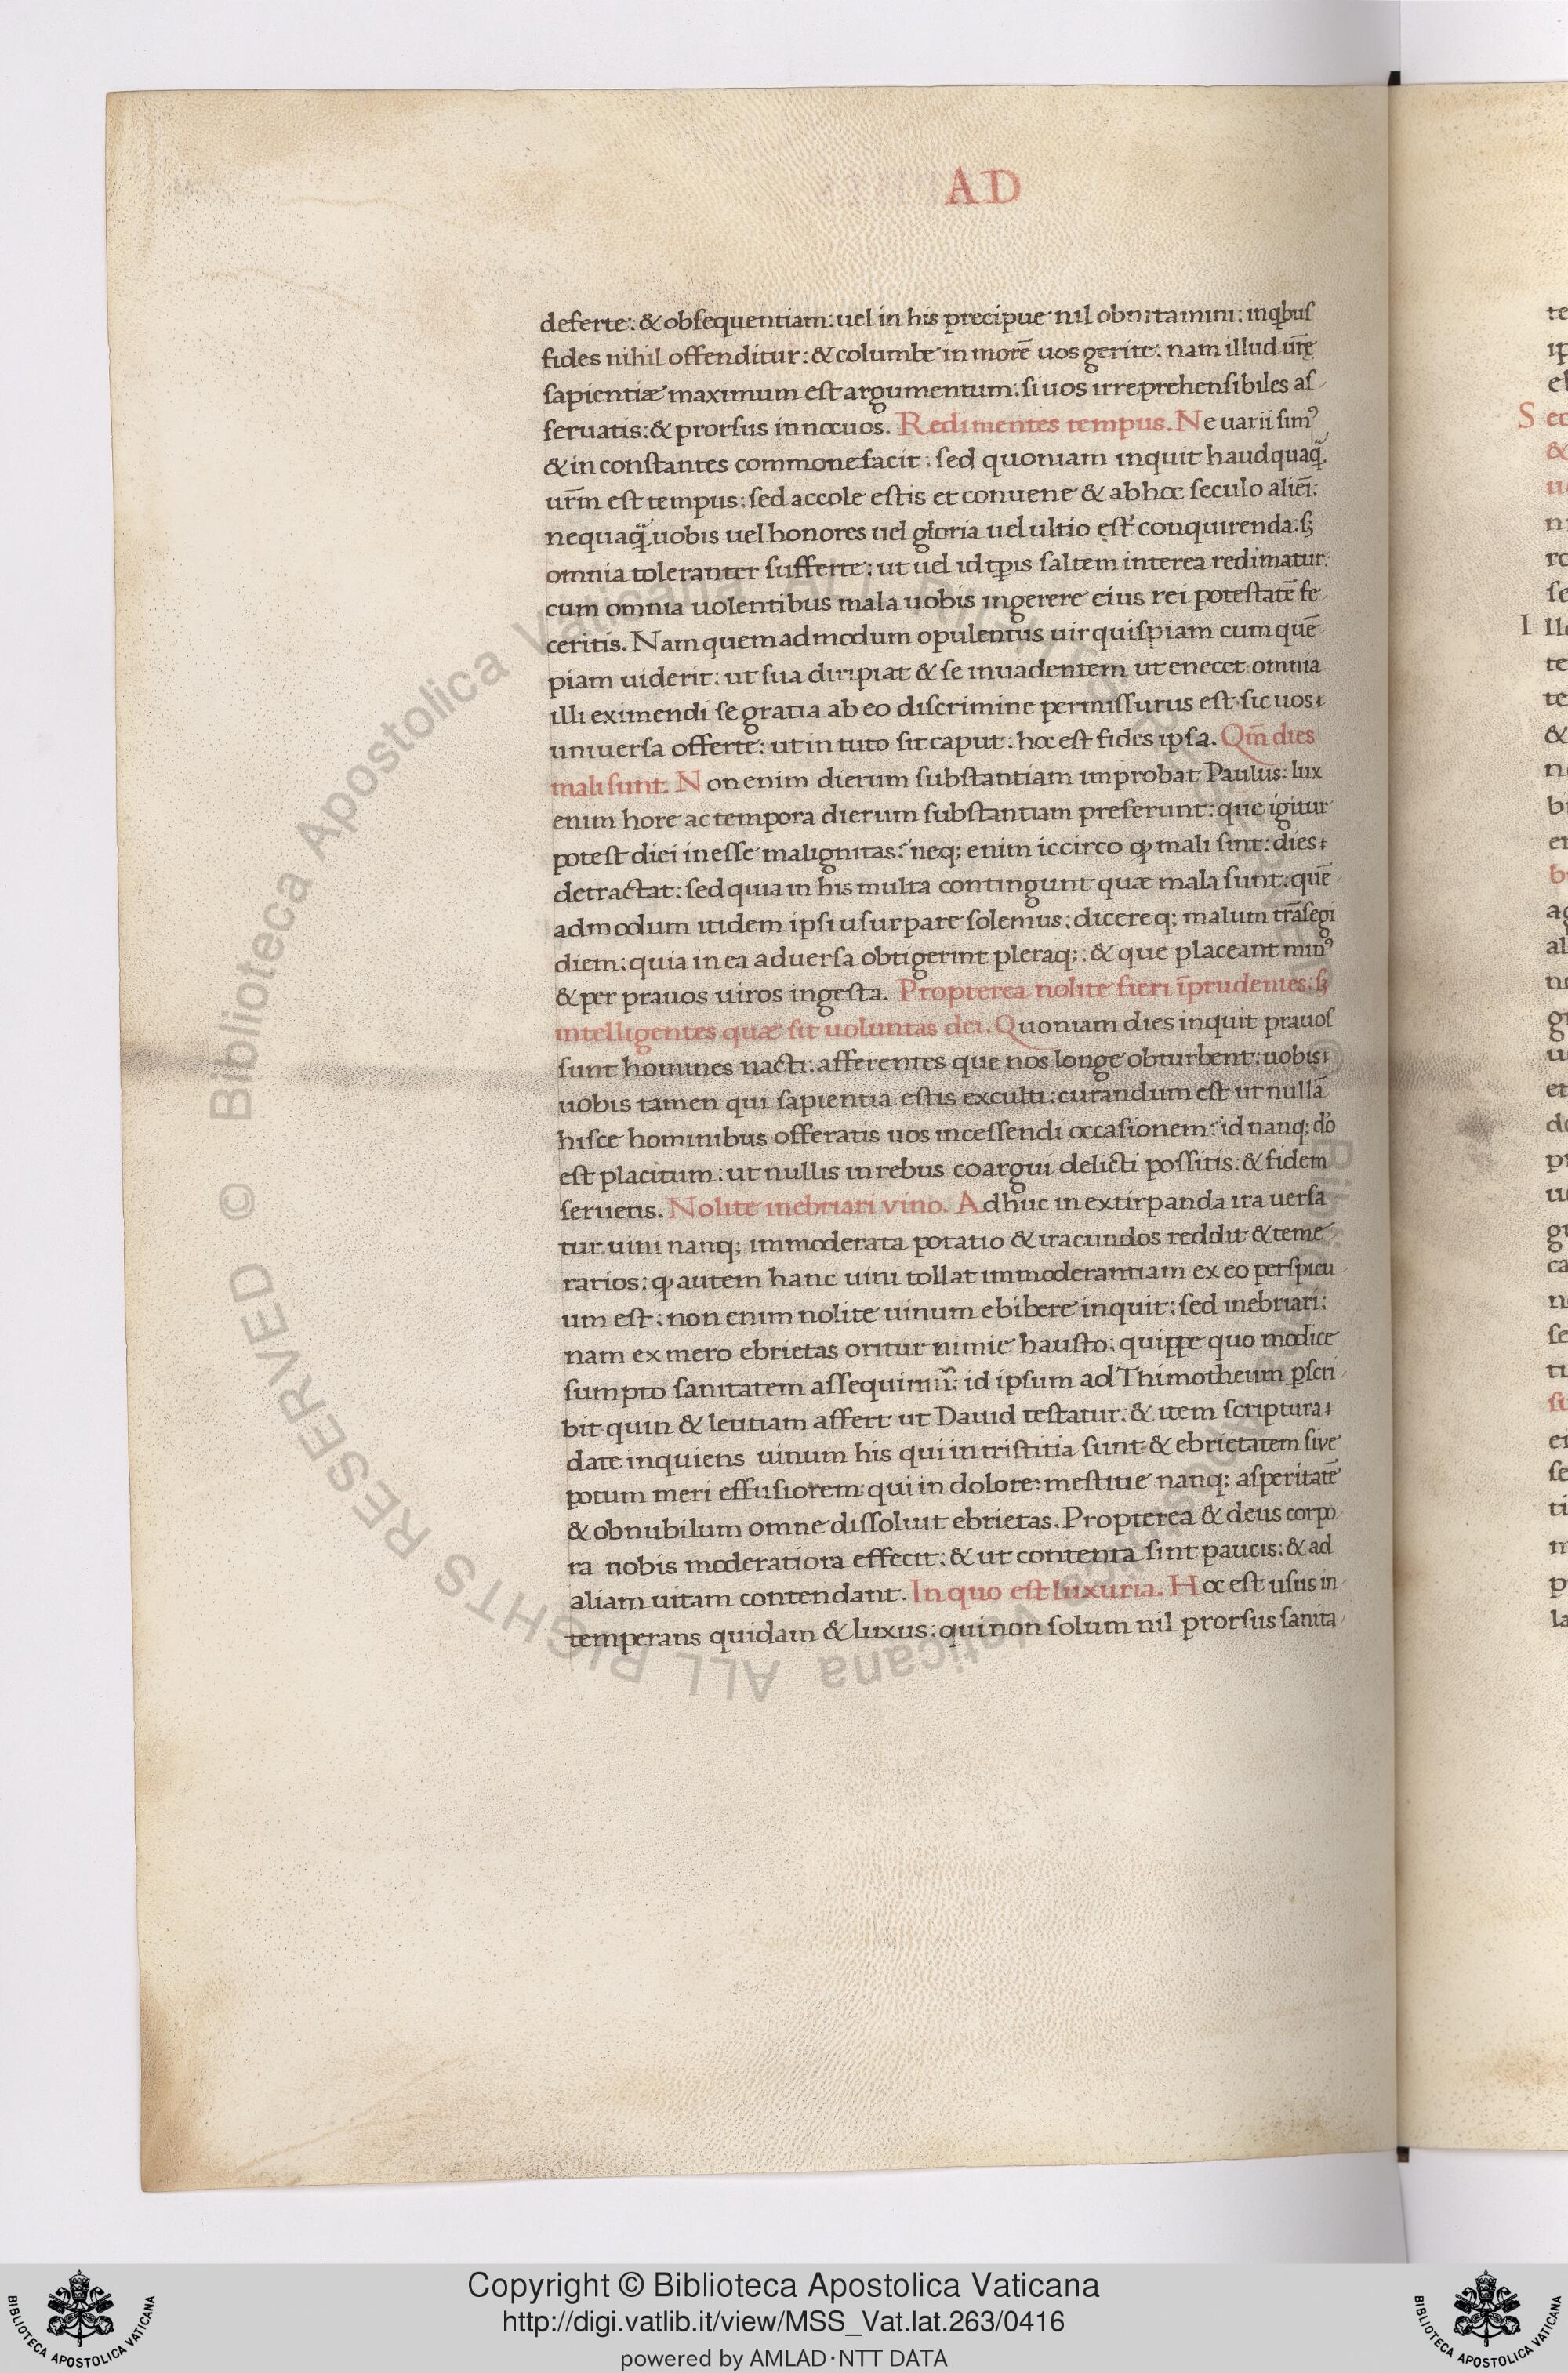 AD
deferte: & obsequentiam: uel in his precipue nil obnitamini: in qbus
fides nihil offenditur: & columbe in morē uos gerite: nam illud ur̄ę
sapientiæ maximum est argumentum: si uos irreprehensibiles as
seruatis: & prorsus innocuos. Redimentes tempus. Ne uarii simꝰ
& inconstantes commonefacit: sed quoniam inquit haudquaq̄
ur̄m est tempus: sed accole estis et conuene & ab hoc seculo aliēi:
nequaq̄ uobis uel honores uel gloria uel ultio est conquirenda. sꝫ
omnia toleranter sufferte: ut uel id tp̄is saltem interea redimatur:
cum omnia uolentibus mala uobis ingerere eius rei potestatē fe
ceritis. Nam quemadmodum opulentus uir quispiam cum quē
piam uiderit: ut sua diripiat & se inuadentem ut enecet: omnia
illi eximendi se gratia ab eo discrimine permissurus est: sic uos:
uniuersa offerte: ut in tuto sit caput: hoc est fides ipsa. Qm̄ dies
mali sunt. Non enim dierum substantiam improbat Paulus: lux
enim hore ac tempora dierum substantiam preferunt: que igitur
potest diei inesse malignitas? neq; enim iccirco ꝙ mali sint: dies:
detractat: sed quia in his multa contingunt quæ mala sunt: quē
admodum itidem ipsi usurpare solemus: dicereq; malum trāsegi
diem: quia in ea aduersa obtigerint pleraq;: & que placeant minꝰ
& per prauos uiros ingesta. Propterea nolite fieri īprudentes: sꝫ
intelligentes quæ sit uoluntas dei. Quoniam dies inquit prauos
sunt homines nacti: afferentes que nos longe obturbent: uobis:
uobis tamen qui sapientia estis exculti: curandum est ut nullā
hisce hominibus offeratis uos incessendi occasionem: id nanq: do
est placitum: ut nullis in rebus coargui delicti possitis: & fidem
seruetis. Nolite inebriari vino. Adhuc in extirpanda ira uersa
tur. uini nanq; immoderata potatio & iracundos reddit & teme
rarios: ꝙ autem hanc uini tollat immoderantiam ex eo perspicu
um est: non enim nolite uinum ebibere inquit: sed inebriari:
nam ex mero ebrietas oritur nimie hausto: quippe quo modice
sumpto sanitatem assequimur: id ipsum ad Thimotheum p̱scri
bit. quin & letitiam affert ut Dauid testatur: & item scriptura:
date inquiens uinum his qui in tristitia sunt & ebrietatem sive
potum meri effusiorem: qui in dolore: mestitie nanq; asperitatē
& obnubilum omne dissoluit ebrietas. Propterea & deus corpo
ra nobis moderatiora effecit: & ut contenta sint paucis: & ad
aliam uitam contendant. In quo est luxuria. Hoc est usus in
temperans quidam & luxus: qui non solum nil prorsus sanita
© Biblioteca Apostolica Vaticana ALL RIGHTS RESERVED
Copyright © Biblioteca Apostolica Vaticana
http://digi.vatlib.it/view/MSS_Vat.lat.263/0416
powered by AMLAD·NTT DATA
BIBLIOTECA APOSTOLICA VATICANA
BIBLIOTECA APOSTOLICA VATICANA